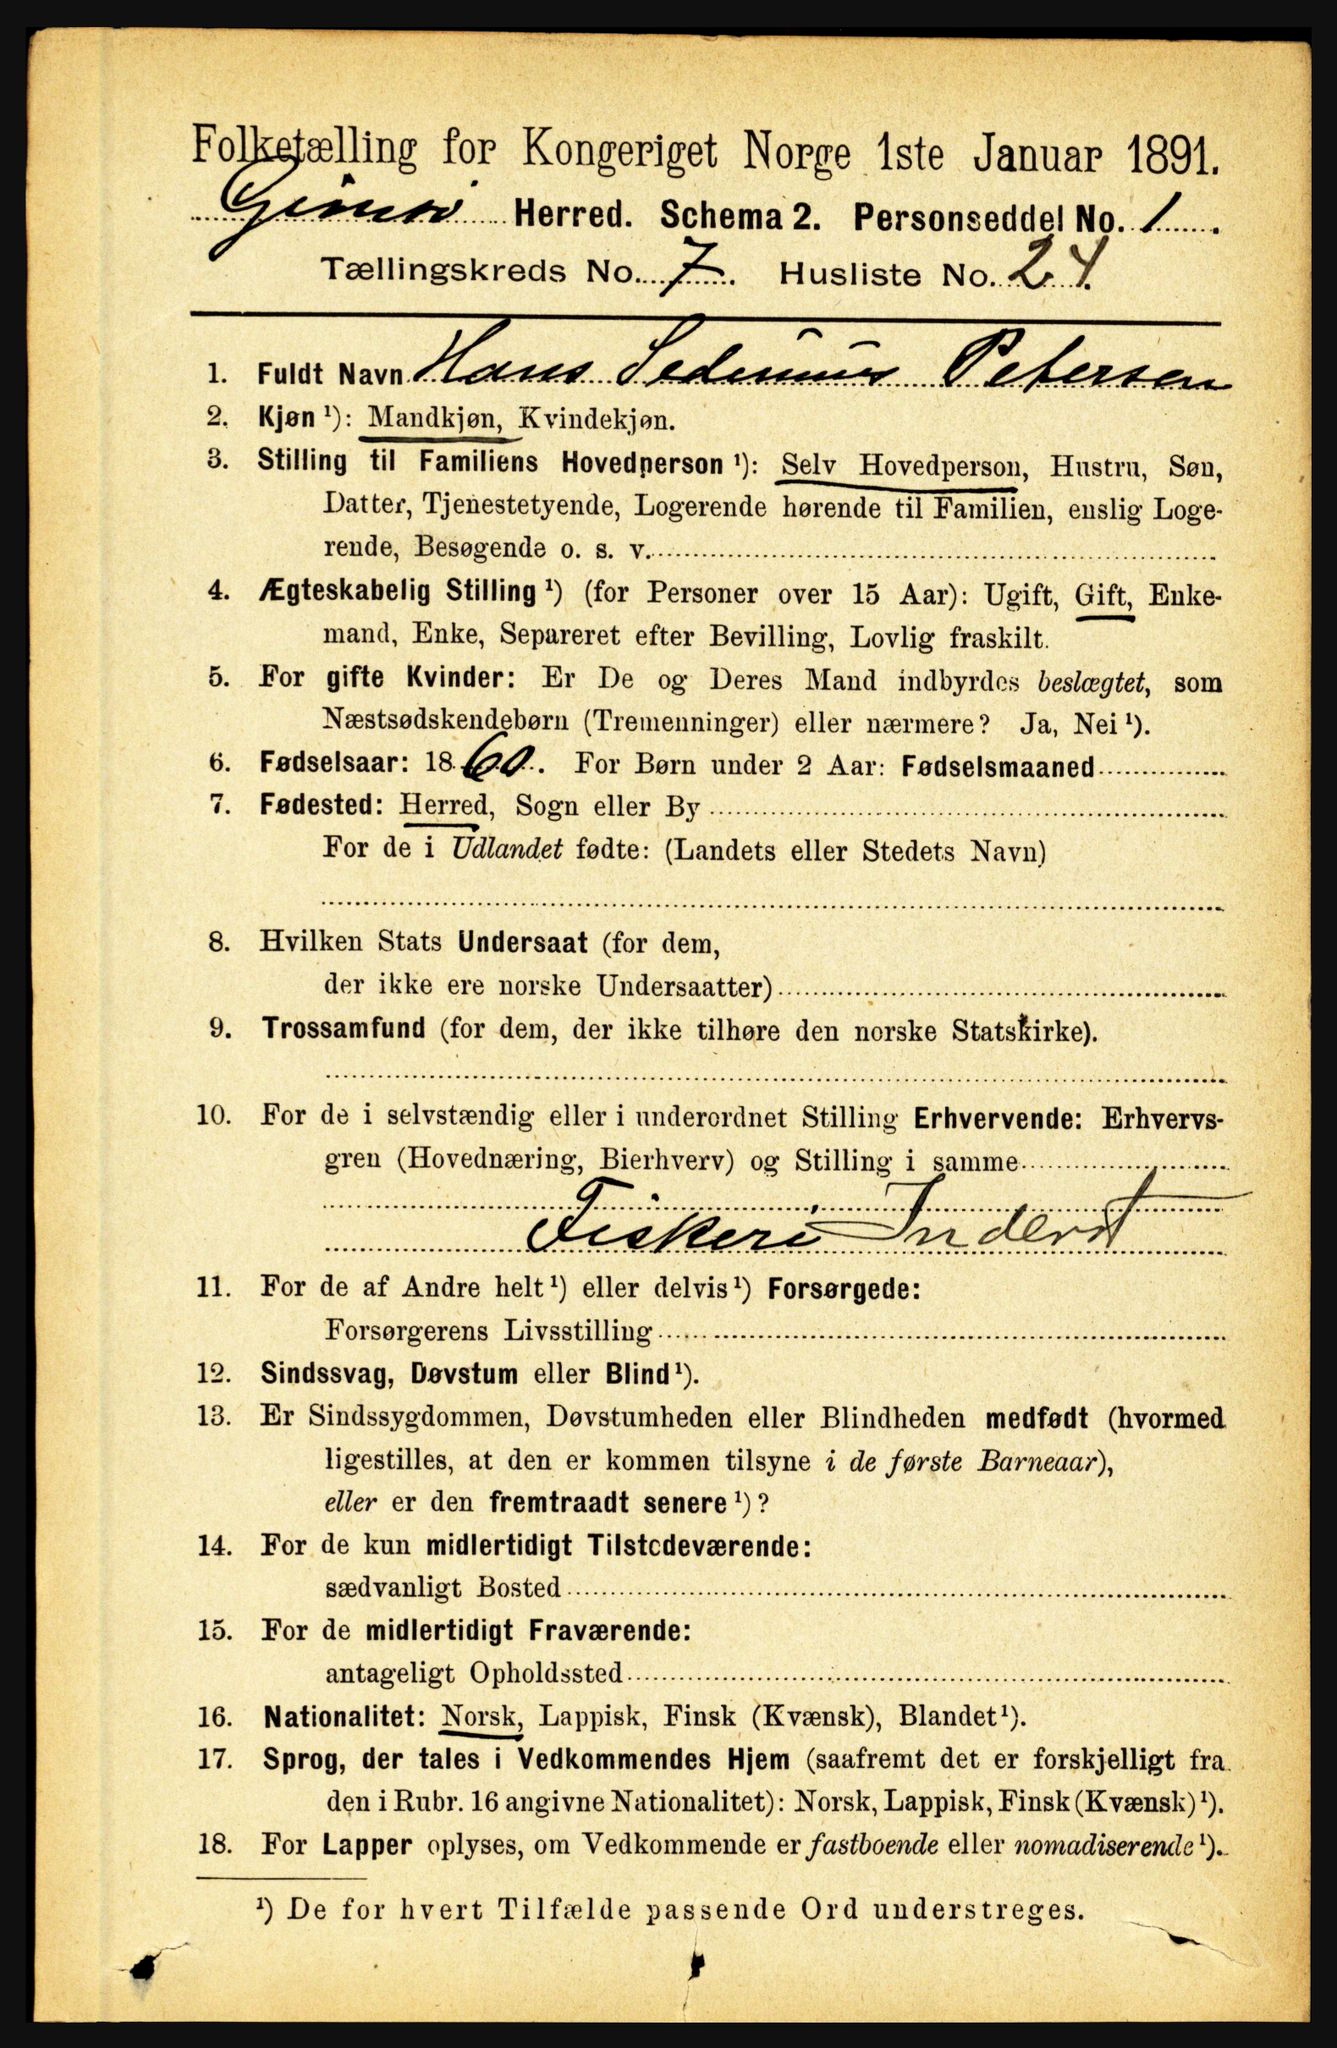 Folketælling for Kongeriget Norge 1ste Januar 1891.
Gimsø Herred. Schema 2. Personseddel No. 1.
Tællingskreds No. 7. Husliste No. 24.
1. Fuldt Navn Hans Petersen
2. Kjøn ¹): Mandkjøn, Kvindekjøn.
3. Stilling til Familiens Hovedperson ¹): Selv Hovedperson, Hustru, Søn,
Datter, Tjenestetyende, Logerende hørende til Familien, enslig Loge-
rende, Besøgende o. s. v.
4. Ægteskabelig Stilling ¹) (for Personer over 15 Aar): Ugift, Gift, Enke-
mand, Enke, Separeret efter Bevilling, Lovlig fraskilt.
5. For gifte Kvinder: Er De og Deres Mand indbyrdes beslægtet, som
Næstsødskendebørn (Tremenninger) eller nærmere? Ja, Nei ¹).
6. Fødselsaar: 1860. For Børn under 2 Aar: Fødselsmaaned
7. Fødested: Herred, Sogn eller By
For de i Udlandet fødte: (Landets eller Stedets Navn)
8. Hvilken Stats Undersaat (for dem,
der ikke ere norske Undersaatter)
9. Trossamfund (for dem, der ikke tilhøre den norske Statskirke).
10. For de i selvstændig eller i underordnet Stilling Erhvervende: Erhvervs-
gren (Hovednæring, Bierhverv) og Stilling i samme
Fiskeri Inderst
11. For de af Andre helt ¹) eller delvis ¹) Forsørgede:
Forsørgerens Livsstilling
12. Sindssvag, Døvstum eller Blind ¹).
13. Er Sindssygdommen, Døvstumheden eller Blindheden medfødt (hvormed
ligestilles, at den er kommen tilsyne i de første Barneaar),
eller er den fremtraadt senere ¹)?
14. For de kun midlertidigt Tilstedeværende:
sædvanligt Bosted
15. For de midlertidigt Fraværende:
antageligt Opholdssted
16. Nationalitet: Norsk, Lappisk, Finsk (Kvænsk), Blandet ¹).
17. Sprog, der tales i Vedkommendes Hjem (saafremt det er forskjelligt fra
den i Rubr. 16 angivne Nationalitet): Norsk, Lappisk, Finsk (Kvænsk) ¹).
18. For Lapper oplyses, om Vedkommende er fastboende eller nomadiserende ¹).
¹) De for hvert Tilfælde passende Ord understreges.